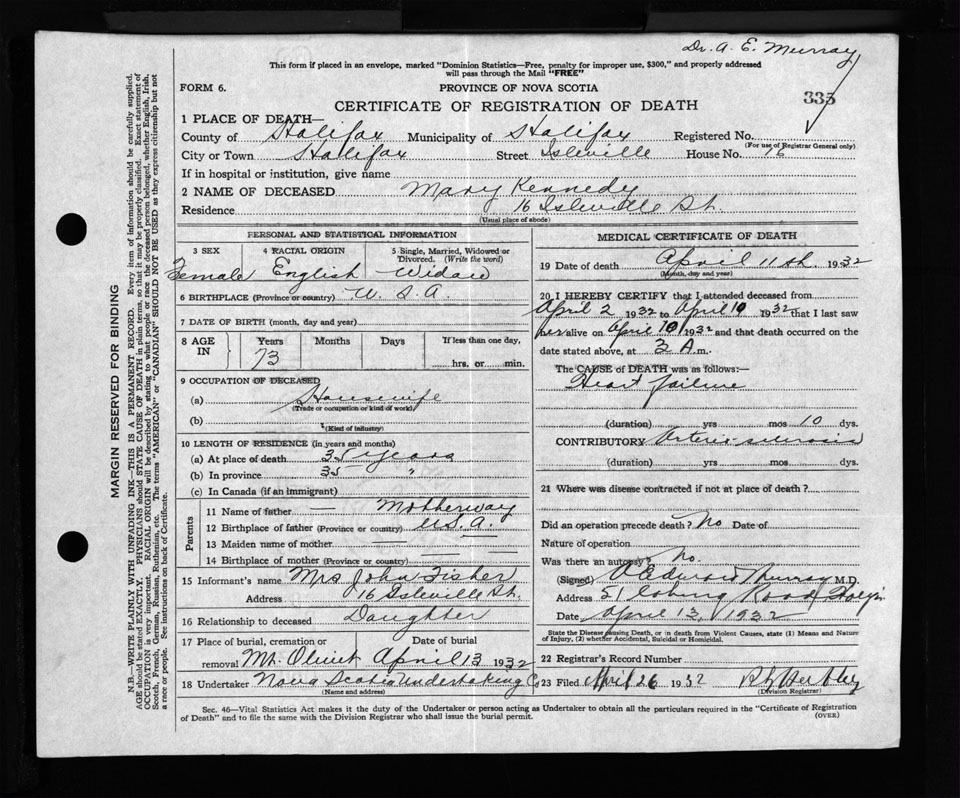 Dr. A. E. Murray
This form if placed in an envelope, marked "Dominion Statistics—Free, penalty for improper use, $300," and properly addressed
will pass through the Mail "FREE"
FORM 6.
PROVINCE OF NOVA SCOTIA
335
CERTIFICATE OF REGISTRATION OF DEATH
1 PLACE OF DEATH—
County of Halifax Municipality of Halifax Registered No.
(For use of Registrar General only)
City or Town Halifax Street Isleville House No. 16
If in hospital or institution, give name
2 NAME OF DECEASED Mary Kennedy
Residence 16 Isleville St.
(Usual place of abode)
PERSONAL AND STATISTICAL INFORMATION
3 SEX 4 RACIAL ORIGIN 5 Single, Married, Widowed or
Divorced. (Write the word)
Female English Widow
6 BIRTHPLACE (Province or country) U. S. A.
7 DATE OF BIRTH (month, day and year)
8 AGE IN Years Months Days If less than one day,
73 hrs. or min.
9 OCCUPATION OF DECEASED
(a) Housewife
(Trade or occupation or kind of work)
(b)
(Kind of industry)
10 LENGTH OF RESIDENCE (in years and months)
(a) At place of death 35 years
(b) In province 35 "
(c) In Canada (if an immigrant)
Parents
11 Name of father — Motherway
12 Birthplace of father (Province or country) U.S.A.
13 Maiden name of mother —
14 Birthplace of mother (Province or country) — —
15 Informant's name Mrs John Fisher
Address 16 Isleville St.
16 Relationship to deceased Daughter
17 Place of burial, cremation or Date of burial
removal Mt. Olivet April 13 1932
18 Undertaker Nova Scotia Undertaking Co
(Name and address)
MEDICAL CERTIFICATE OF DEATH
19 Date of death April 11th. 1932
(Month, day and year)
20 I HEREBY CERTIFY that I attended deceased from
April 2 1932 to April 10 1932 that I last saw
her alive on April 10 1932 and that death occurred on the
date stated above, at 3 A.m.
The CAUSE of DEATH was as follows:—
Heart failure
(duration) yrs mos 10 dys.
CONTRIBUTORY Arterio-sclerosis
(duration) yrs mos. dys.
21 Where was disease contracted if not at place of death?
Did an operation precede death? No Date of
Nature of operation
Was there an autopsy? No.
(Signed) A Edward Murray M.D.
Address 51 Coburg Road Halifax
Date April 13, 1932
State the Disease causing Death, or in death from Violent Causes, state (1) Means and Nature
of Injury, (2) whether Accidental, Suicidal or Homicidal.
22 Registrar's Record Number
23 Filed April 26 1932
(Division Registrar)
Sec. 46—Vital Statistics Act makes it the duty of the Undertaker or person acting as Undertaker to obtain all the particulars required in the "Certificate of Registration
of Death" and to file the same with the Division Registrar who shall issue the burial permit.
(OVER)
MARGIN RESERVED FOR BINDING
N.B.—WRITE PLAINLY WITH UNFADING INK—THIS IS A PERMANENT RECORD. Every item of information should be carefully supplied.
AGE should be stated EXACTLY. PHYSICIANS should STATE CAUSE OF DEATH in plain terms, so that it may be properly classified. Exact statement of
OCCUPATION is very important. RACIAL ORIGIN will be described by stating to what people or race the deceased person belonged, whether English, Irish,
Scotch, French, German, Russian, Ruthenian, etc. The terms "AMERICAN" or "CANADIAN" SHOULD NOT BE USED as they express citizenship but not
a race or people. See instructions on back of Certificate.